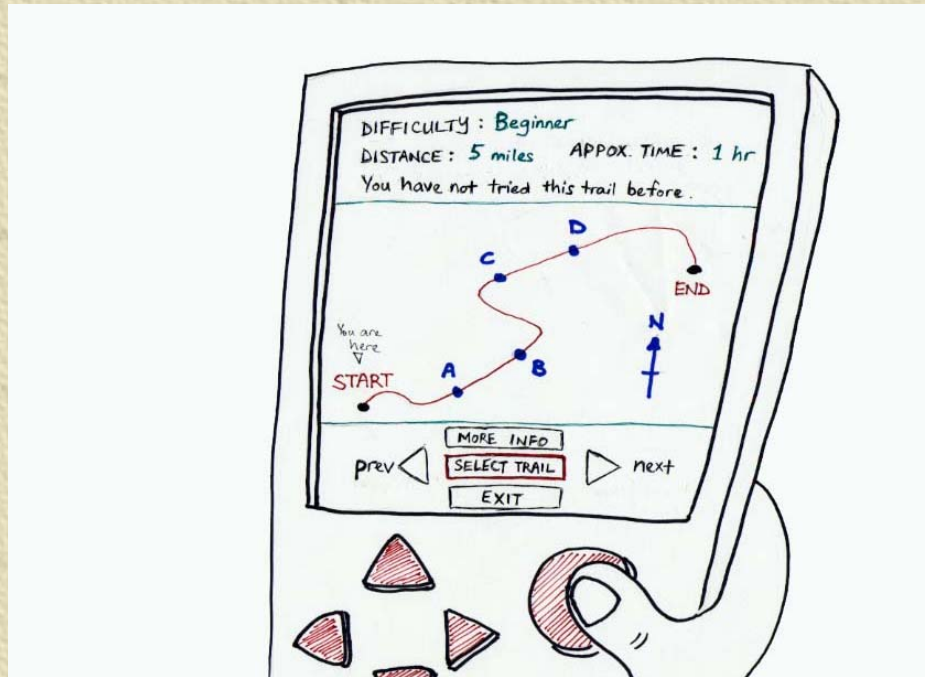 DIFFICULTY : Beginner
DISTANCE : 5 miles APPOX. TIME : 1 hr
You have not tried this trail before.
D
C
END
N
You are
here
START
A
B
MORE INFO
prev SELECT TRAIL next
EXIT